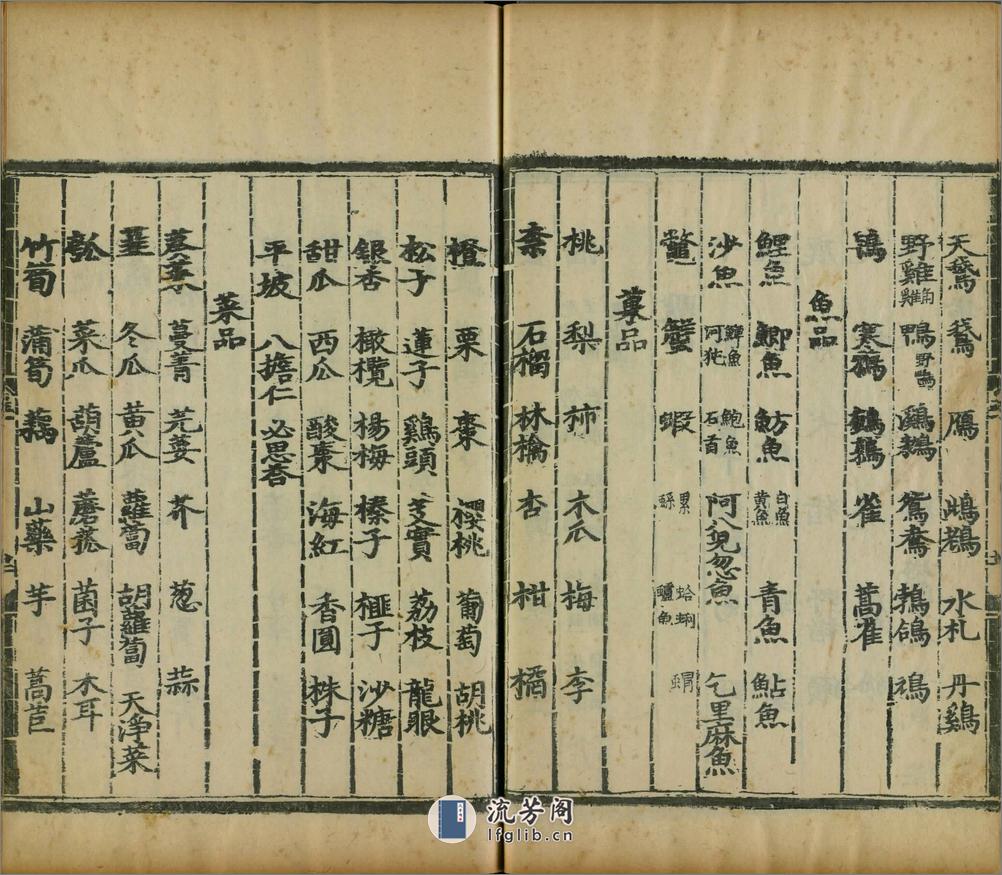 天鵞 鵞 鴈 鴜鵜 水札 丹鷄
野雞 角雞 鴨 野鴨 鸂鶒 鴛鴦 鵓鴿 鳩
鴇 寒鴉 鵪鶉 雀 蒿雀
魚品
鯉魚 鯽魚 魴魚 白魚 黄魚 青魚 鮎魚
沙魚 鱓魚 河㹠 鮑魚 石首 阿八兒忽魚 乞里麻魚
鼈 蟹 蝦 螺 蛤蜊 鱸魚 蝟
菓品
桃 梨 柿 木瓜 梅 李
柰 石榴 林檎 杏 柑 橘
橙 栗 棗 櫻桃 葡萄 胡桃
松子 蓮子 鷄頭 芰實 荔枝 龍眼
銀杏 橄欖 楊梅 榛子 榧子 沙糖
甜瓜 西瓜 酸棗 海紅 香圓 株子
平坡 八擔仁 必思荅
菜品
葵菜 蔓菁 芫荽 芥 葱 蒜
韮 冬瓜 黄瓜 蘿蔔 胡蘿蔔 天净菜
瓠 菜瓜 葫蘆 蘑菰 菌子 木耳
竹笋 蒲笋 藕 山藥 芋 萵苣
流芳阁
lfglib.cn